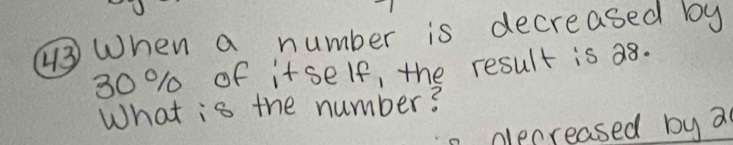 (43) When a number is decreased by
30% of itself, the result is 28.
What is the number?
decreased by